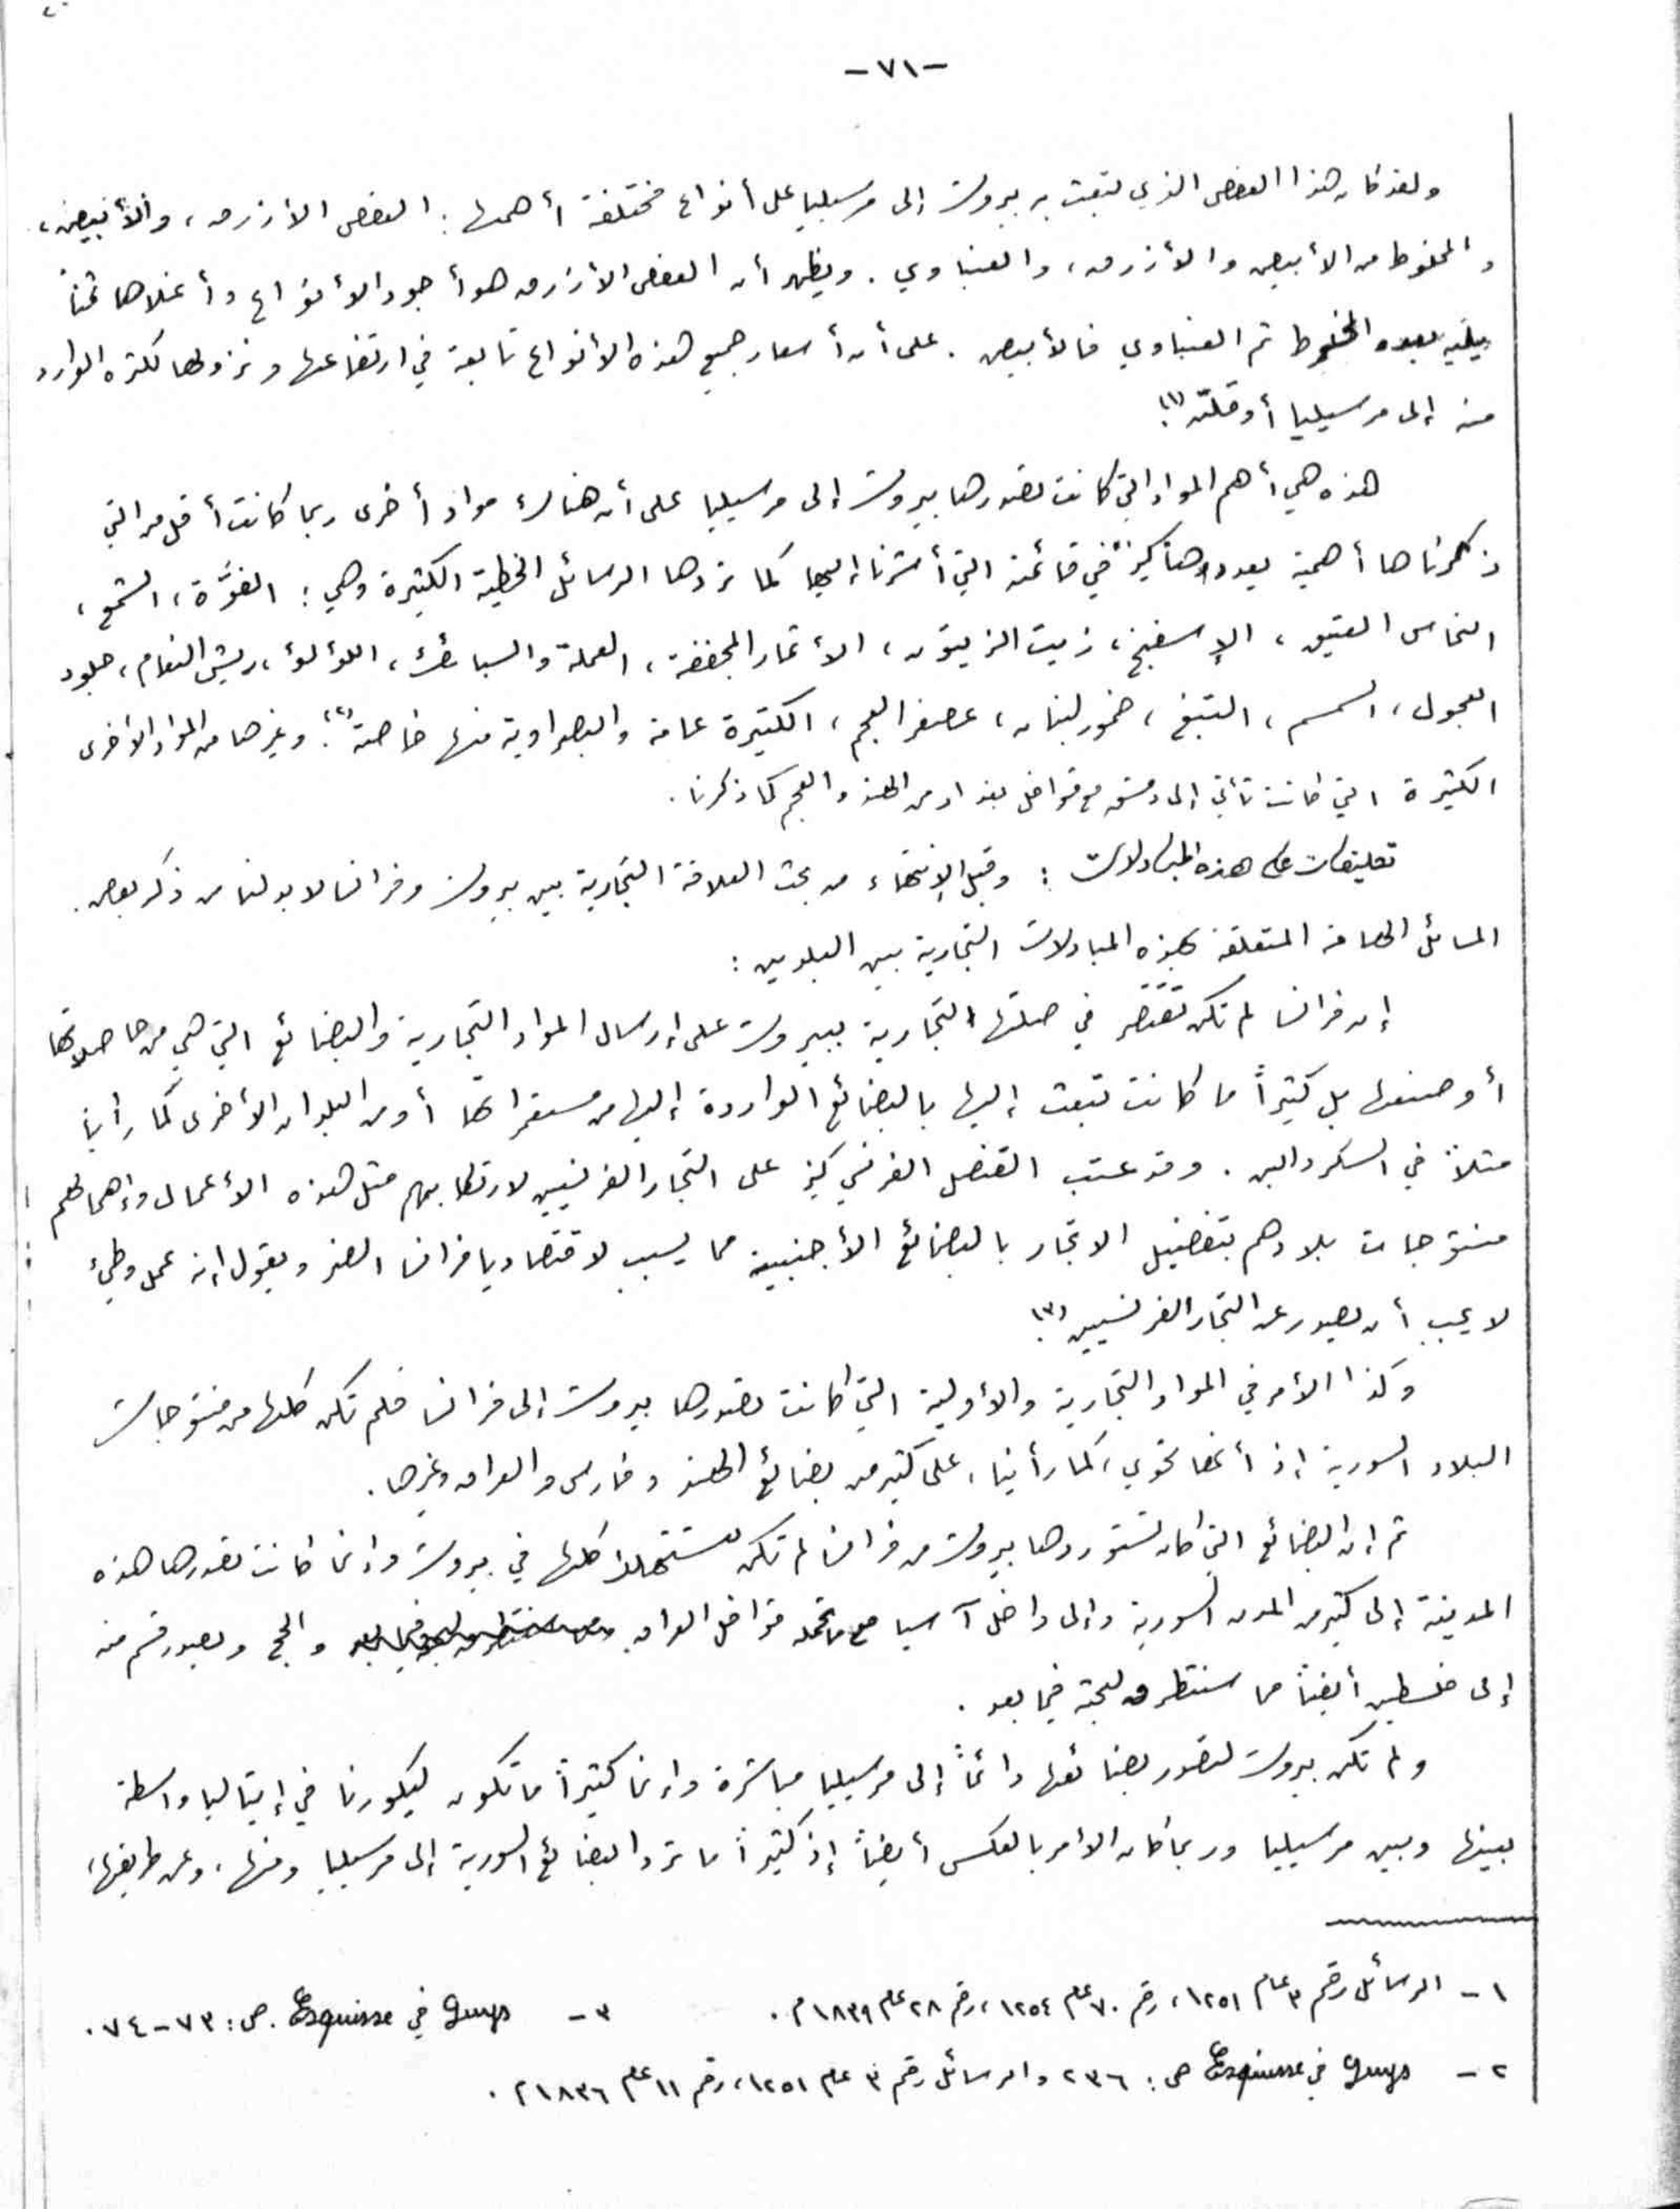 -٧١-
ولقد كان هذا العفص الذي تبعث به بيروت إلى مرسيليا على أنواع مختلفة أهمها : العفص الأزرق ، والأبيض ،
والمخلوط من الأبيض والأزرق ، والعنباوي . ويظهر أن العفص الأزرق هو أجود الأنواع وأغلاها ثمناً
يليه بعده المخلوط ثم العنباوي فالأبيض . على أن أسعار جميع هذه الأنواع تابعة في ارتفاعها ونزولها لكثرة الوارد
منه إلى مرسيليا أو قلته (١).
هذه هي أهم المواد التي كانت تصدرها بيروت إلى مرسيليا على أن هناك مواد أخرى ربما كانت أقل من التي
ذكرناها أهمية يعددها كيز في قائمته التي أشرنا إليها كما تردها الرسائل الخطية الكثيرة وهي : الفوَّة ، الشمع ،
النحاس العتيق ، الإسفنج ، زيت الزيتون ، الأثمار المجففة ، العملة والسبائك ، اللؤلؤ ، ريش النعام ، جلود
العجول ، السمسم ، التبغ ، خمور لبنان ، عصفر العجم ، الكثيرة عامة والبصراوية منها خاصة (٢). وغيرها من المواد الأخرى
الكثيرة التي كانت تأتي إلى دمشق مع قوافل بغداد من الهند والعجم كما ذكرنا .
تعليقات على هذه المبادلات : وقبل الإنتهاء من بحث العلاقة التجارية بين بيروت وفرانسا لا بد لنا من ذكر بعض .
المسائل الهامة المتعلقة بهذه المبادلات التجارية بين البلدين :
إن فرانسا لم تكن تقتصر في صلتها التجارية ببيروت على إرسال المواد التجارية والبضائع التي هي من حاصلاتها
أو صنعها بل كثيراً ما كانت تبعث إليها بالبضائع الواردة إليها من مستعمراتها أو من البلدان الأخرى كما رأينا
مثلاً في السكر والبن . وقد عتب القنصل الفرنسي كيز على التجار الفرنسيين لارتكابهم مثل هذه الأعمال وإهمالهم
منتوجات بلادهم بتفضيل الاتجار بالبضائع الأجنبية مما يسبب لاقتصاديا فرانسا الضر ويقول إنه عمل وطيء
لا يجب أن يصدر عن التجار الفرنسيين (٣).
وكذا الأمر في المواد التجارية والأولية التي كانت تصدرها بيروت إلى فرانسا فلم تكن كلها من منتوجات
البلاد السورية إذ أنها تحوي ، كما رأينا ، على كثير من بضائع الهند وفارس والعراق وغيرها .
ثم إن البضائع التي كان تستوردها بيروت من فرانسا لم تكن تستهلك كلها في بيروت وإنما كانت تصدرها هذه
المدينة إلى كثير من المدن السورية وإلى داخل آسيا مع ما تحمله قوافل العراق والحج ويصدر قسم منه
إلى فلسطين أيضاً مما سنتطرق لبحثه فيما بعد .
ولم تكن بيروت لتصدر بضائعها دائماً إلى مرسيليا مباشرة وإنما كثيراً ما تكون ليكورنا في إيتاليا واسطة
بينها وبين مرسيليا وربما كان الأمر بالعكس أيضاً إذ كثيراً ما ترد البضائع السورية إلى مرسيليا ومنها ، وعن طريقها ،
١ - الرسائل رقم ٣ عام ١٢٥١ ، رقم ٧٠ عام ١٢٥٤ ، رقم ٢٨ عام ١٨٣٩ م .
٣ - Guys في Esquisse . ص : ٧٣ - ٧٤ .
٢ - Guys في Esquisse ص : ٢٣٦ والرسائل رقم ٣ عام ١٢٥١ ، رقم ١١ عام ١٨٣٦ م .